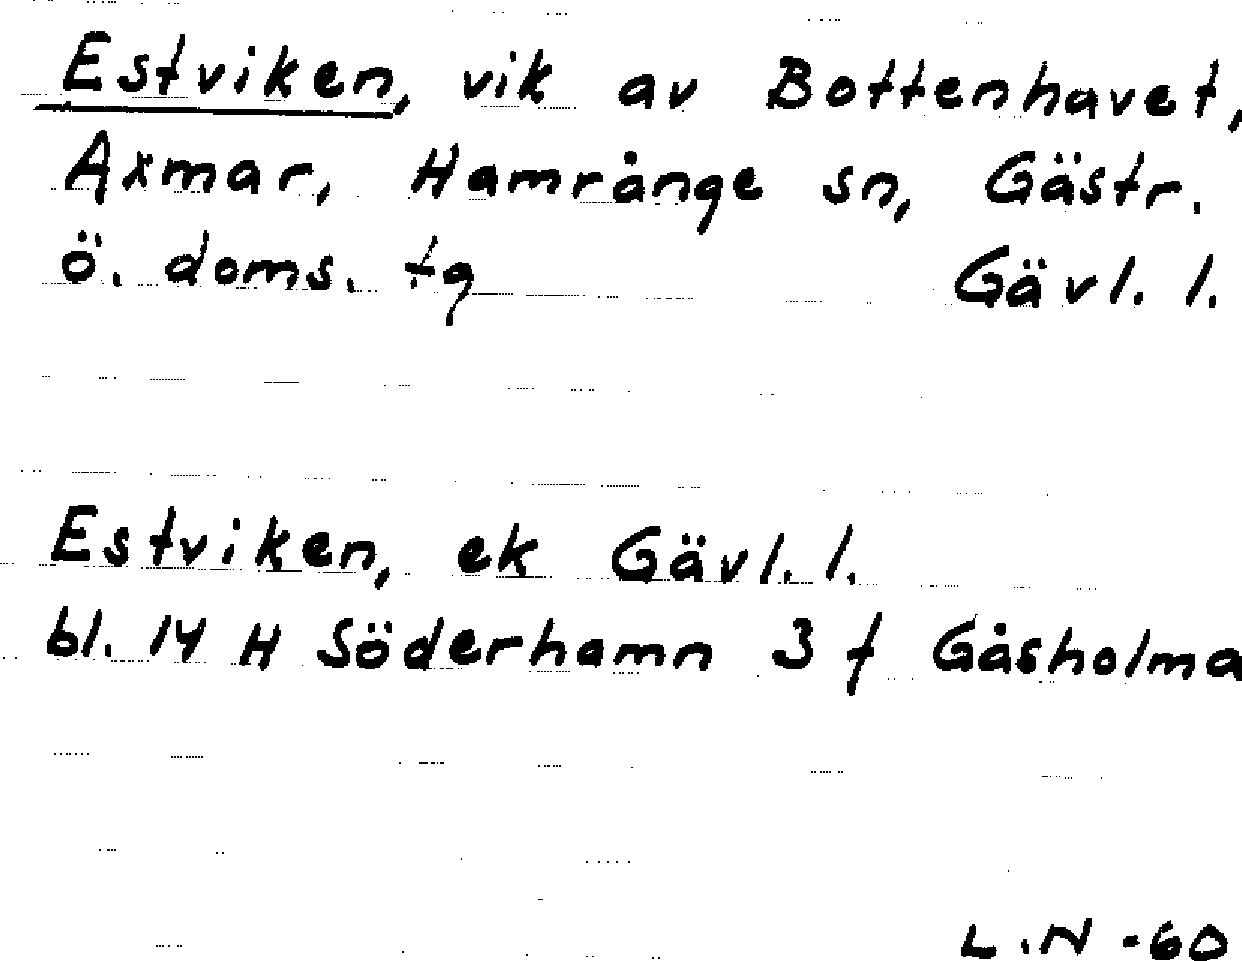 Estviken, vik av Bottenhavet,
Axmar, Hamrånge sn, Gästr.
ö. doms. tg Gävl. l.
Estviken, ek Gävl. l.
bl. 14 H Söderhamn 3 f Gåsholma
L.N -60